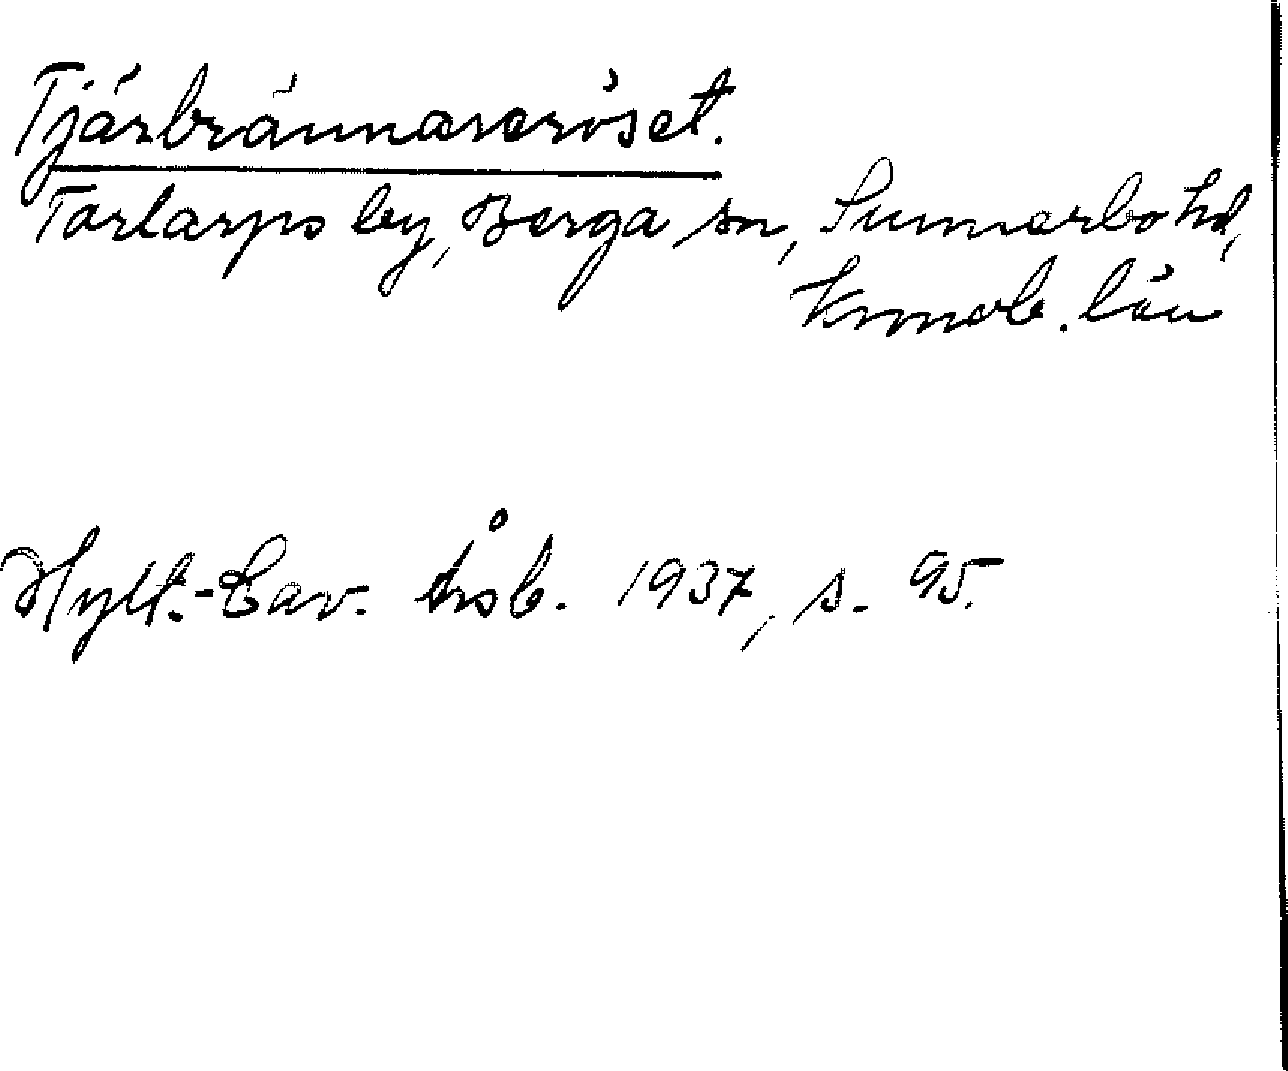 Tjärbrännareröset.
Torlarps by, Berga sn, Sunnerbo hd,
Kronob. län
Hylt.-Cav. Årsb. 1937, s. 95.